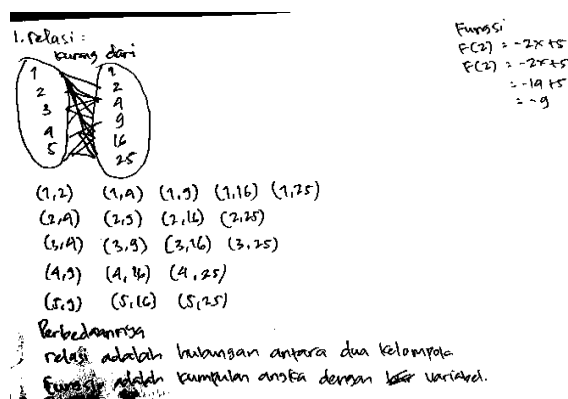 1. relasi :
kurang dari
1
2
3
4
5
1
2
4
9
16
25
(1,2) (1,4) (1,9) (1,16) (1,25)
(2,4) (2,9) (2,16) (2,25)
(3,4) (3,9) (3,16) (3,25)
(4,9) (4,16) (4,25)
(5,9) (5,16) (5,25)
Perbedaannya
relasi adalah hubungan antara dua kelompok
Fungsi adalah kumpulan angka dengan variabel.
Fungsi
F(2) = -2x+5
= -9